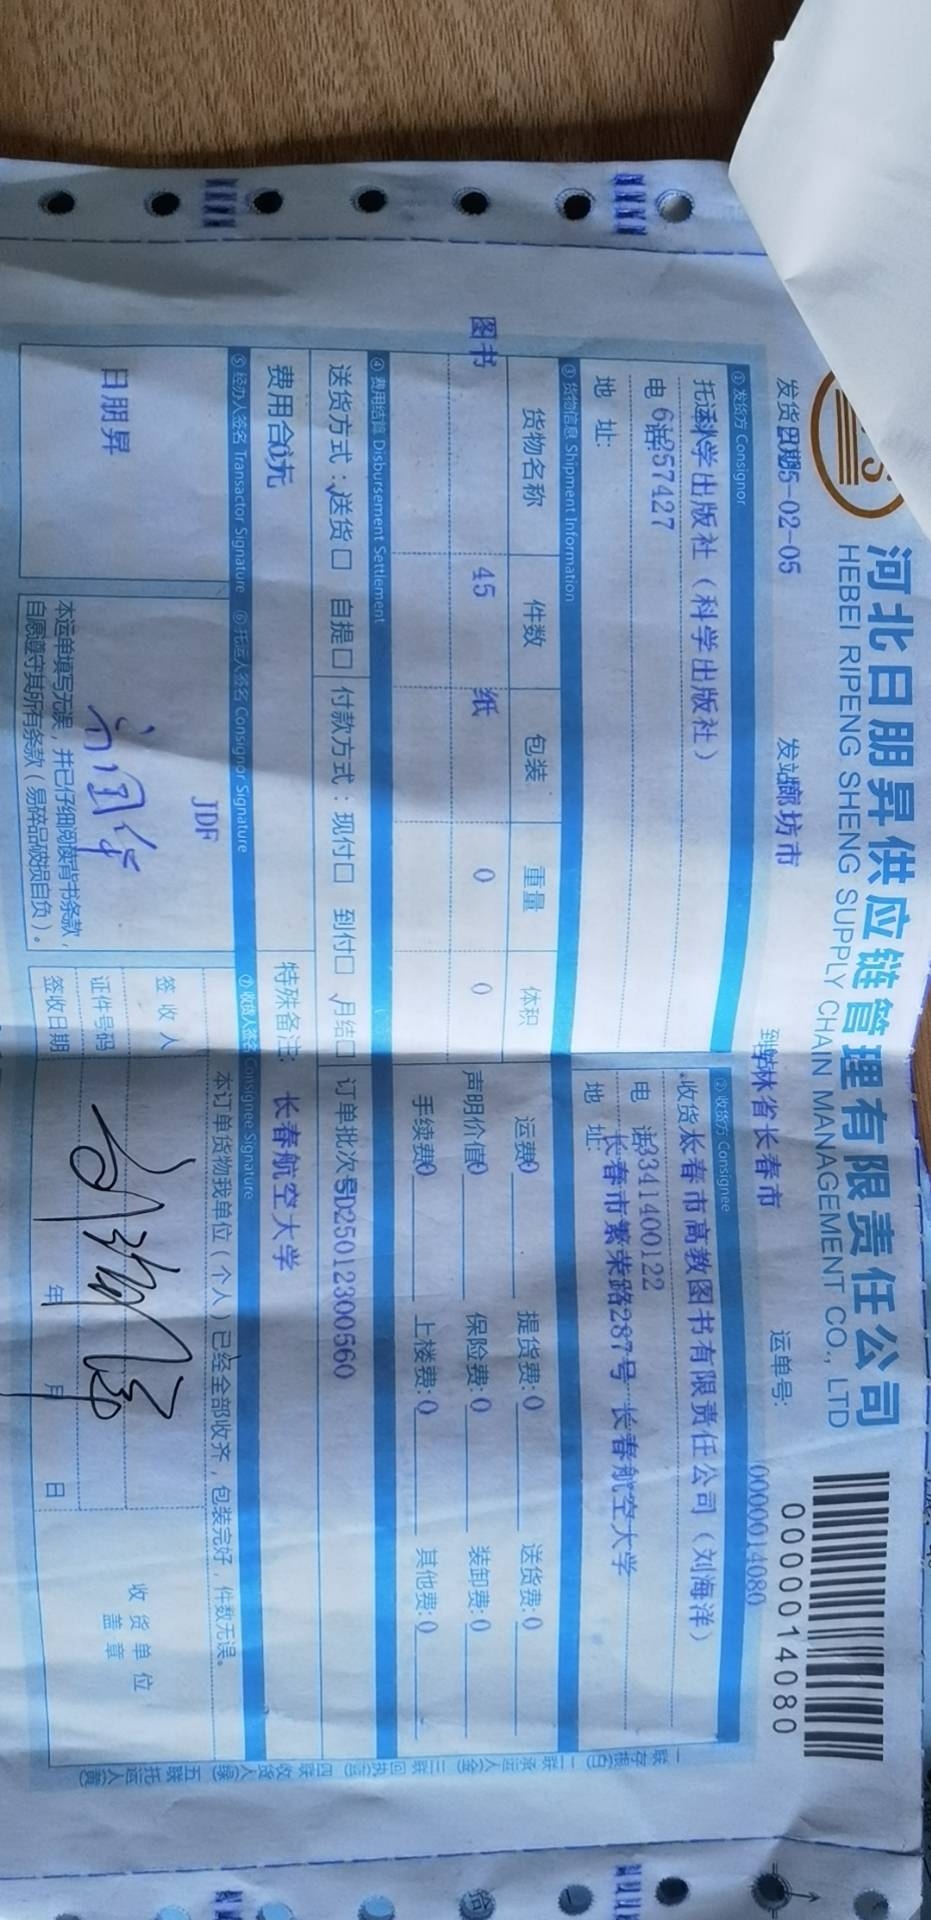 河北日朋昇供应链管理有限责任公司
HEBEI RIPENG SHENG SUPPLY CHAIN MANAGEMENT CO., LTD
0000014080
发货 -02-05 发站廊坊市 吉林省长春市 运单号: 0000014080
① 发货方 Consignor
托运 科学出版社（科学出版社）
电 57427
地 址:
② 收货方 Consignee
收货 长春市高教图书有限责任公司（刘海洋）
电 话 13341400122
地 址: 长春市繁荣路287号 长春航空大学
③ 货物信息 Shipment Information
货物名称 件数 包装 重量 体积
图书 45 纸 0 0
运费0 提货费:0 送货费:0
声明价值0 保险费:0 装卸费:0
手续费0 上楼费:0 其他费:0
④ 费用结算 Disbursement Settlement
送货方式:√送货□ 自提□ 付款方式:现付□ 到付□ √月结□ 订单批次号 SD25012300560
费用合 0元 特殊备注: 长春航空大学
⑤ 经办人签名 Transactor Signature ⑥ 托运人签名 Consignor Signature ⑦ 收货人签名 Consignee Signature
日朋昇
JDF
本运单填写无误，并已仔细阅读背书条款，
自愿遵守其所有条款（易碎品破损自负）。
本订单货物我单位（个人）已经全部收齐，包装完好，件数无误。
签收人
证件号码
签收日期 年 月 日
收货单位
盖章